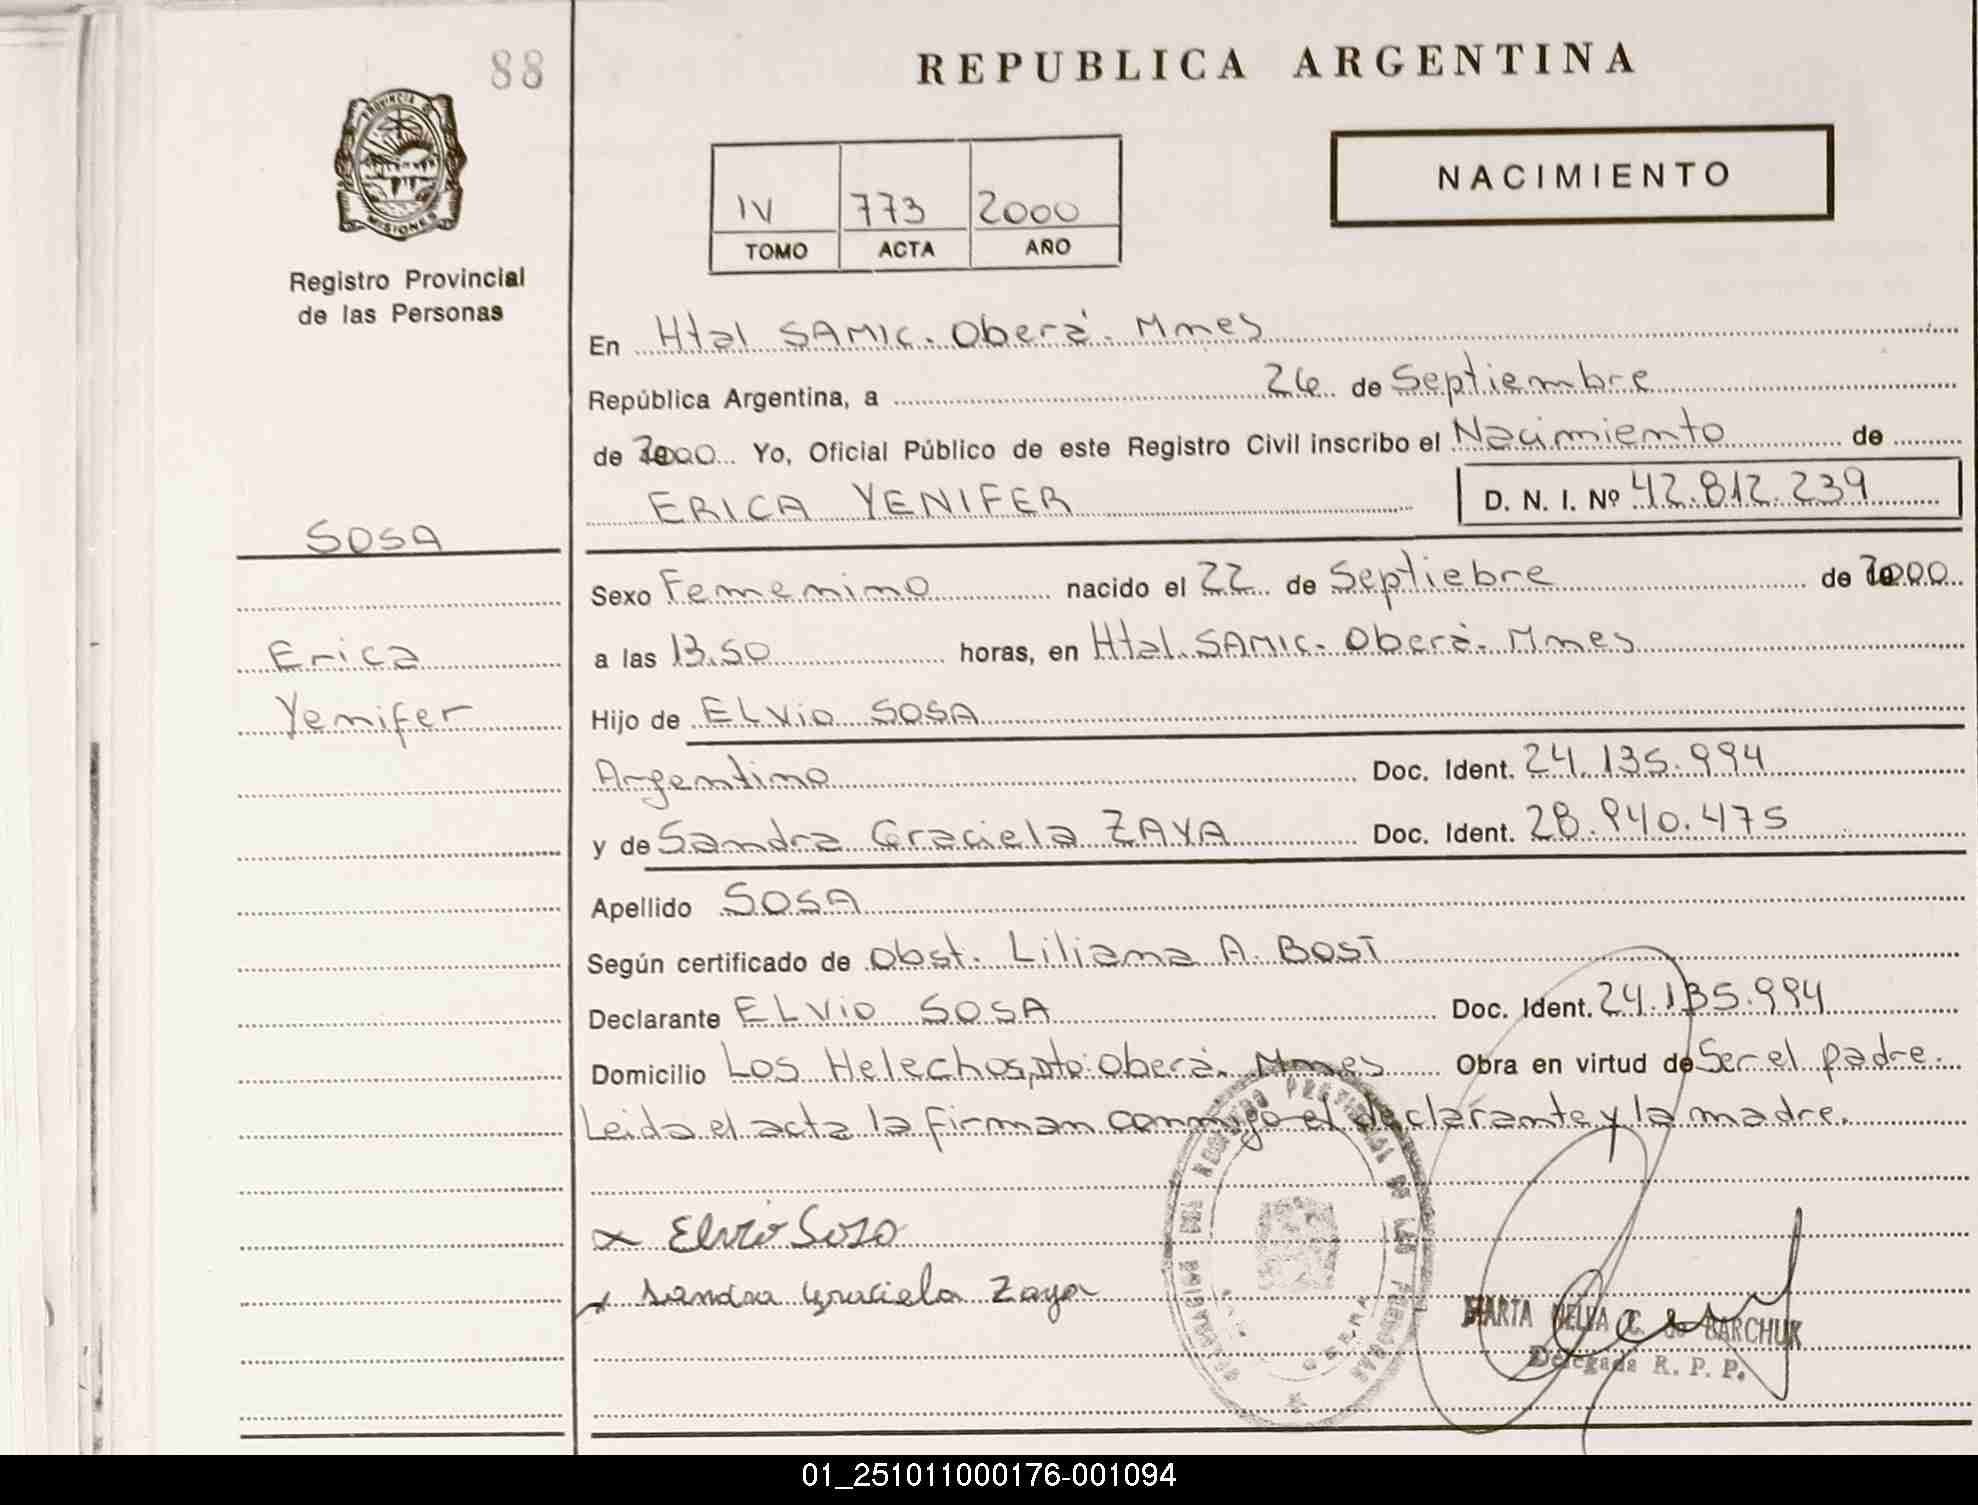 88
REPUBLICA ARGENTINA
PROVINCIA DE
MISIONES
Registro Provincial
de las Personas
NACIMIENTO
IV 773 2000
TOMO ACTA AÑO
En Htal SAMIC. Oberá. Mnes
República Argentina, a 26 de Septiembre
de 2000 Yo, Oficial Público de este Registro Civil inscribo el Nacimiento de
ERICA YENIFER D. N. I. Nº 42.812.239
SOSA
Erica
Yenifer
Sexo Femenino nacido el 22 de Septiebre de 2000
a las 13.50 horas, en Htal. SAMIC. Oberá. Mnes
Hijo de ELVIO SOSA
Argentino Doc. Ident. 24.135.994
y de Sandra Graciela ZAYA Doc. Ident. 28.940.475
Apellido SOSA
Según certificado de Obst. Liliana A. BOST
Declarante ELVIO SOSA Doc. Ident. 24.135.994
Domicilio Los Helechos, Dto. Oberá. Mnes Obra en virtud de Ser el padre.
Leida el acta la firman conmigo el declarante y la madre.
x Elvio Soso
x Sandra Graciela Zaya
REGISTRO PROVINCIAL DE LAS PERSONAS
OBERA
MARTA NELVA C. de BARCHUK
Delegada R. P. P.
01_251011000176-001094